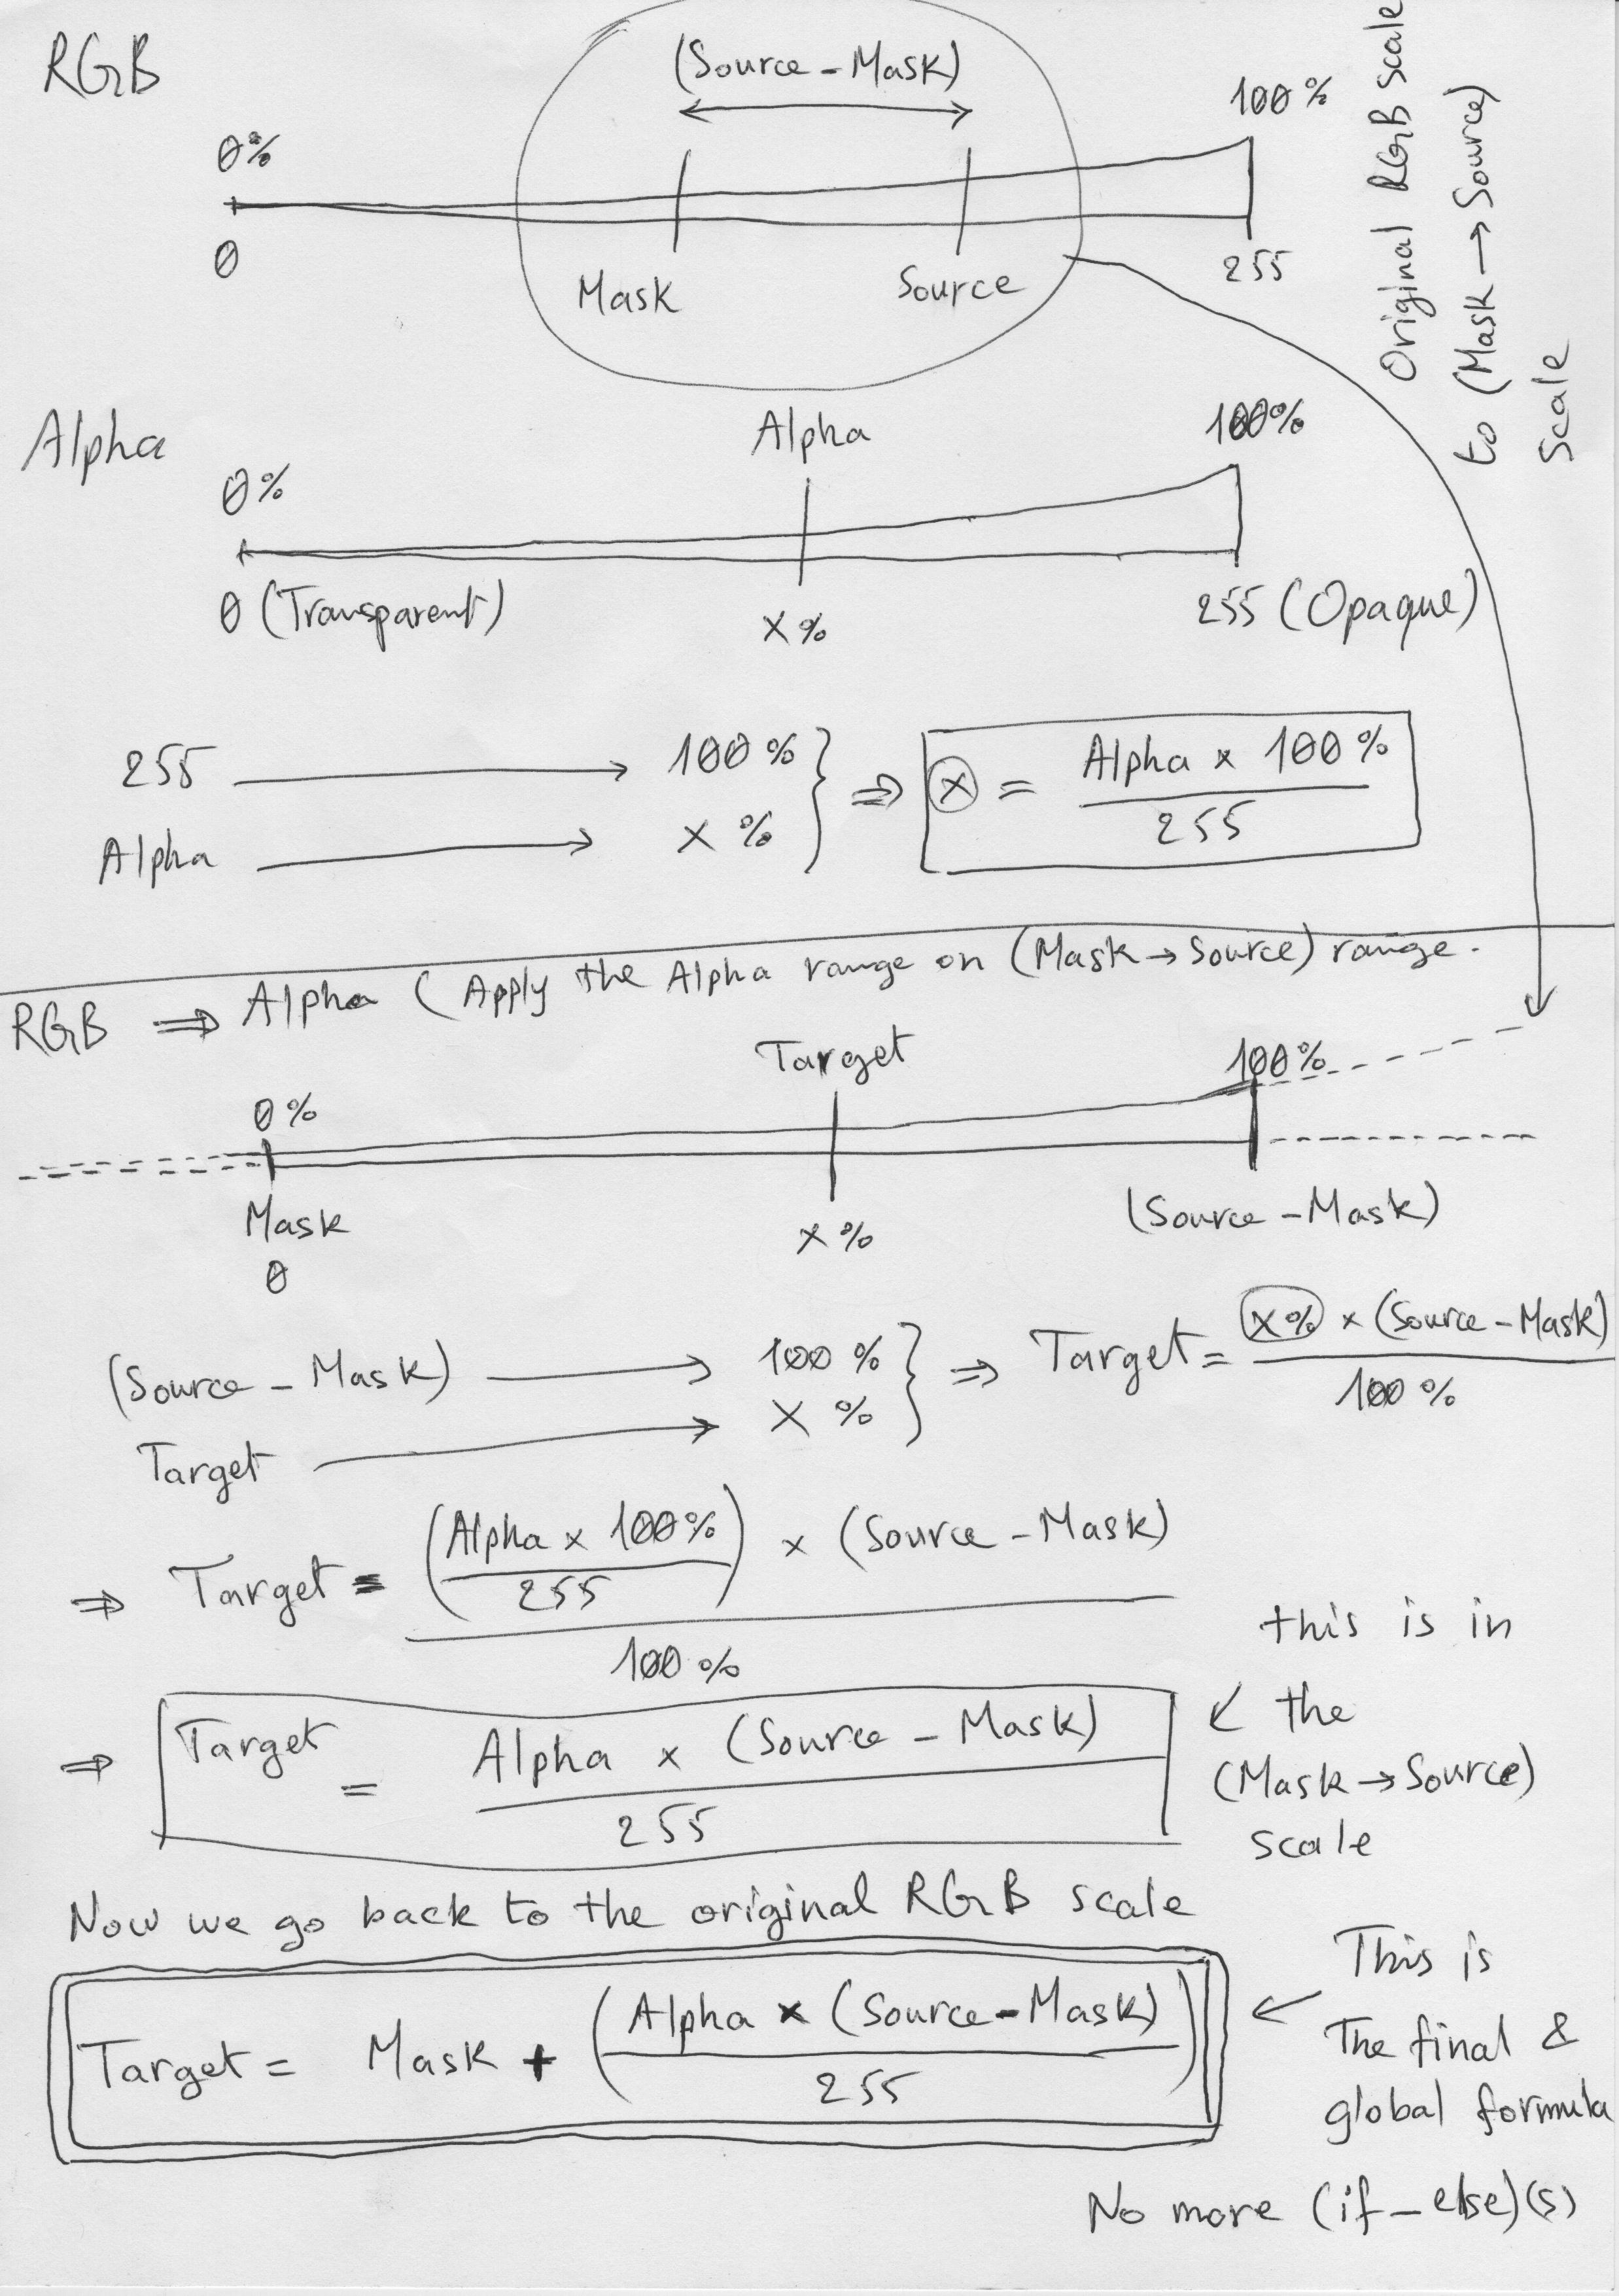 RGB
(Source - Mask)
0% 100%
0 Mask Source 255
Original RGB scale
to (Mask → Source)
scale
Alpha
Alpha
0% 100%
0 (Transparent) X% 255 (Opaque)
255 → 100% } ⇒ X = Alpha x 100% / 255
Alpha → X %
RGB ⇒ Alpha (Apply the Alpha range on (Mask → Source) range.
Target
0% 100%
Mask X% (Source - Mask)
0
(Source - Mask) → 100 % } ⇒ Target = X% x (Source - Mask) / 100 %
Target → X %
⇒ Target = (Alpha x 100% / 255) x (Source - Mask) / 100 %
⇒ Target = Alpha x (Source - Mask) / 255
↙ this is in
the
(Mask → Source)
scale
Now we go back to the original RGB scale
Target = Mask + (Alpha x (Source - Mask) / 255)
← This is
The final &
global formula
No more (if_else)(s)